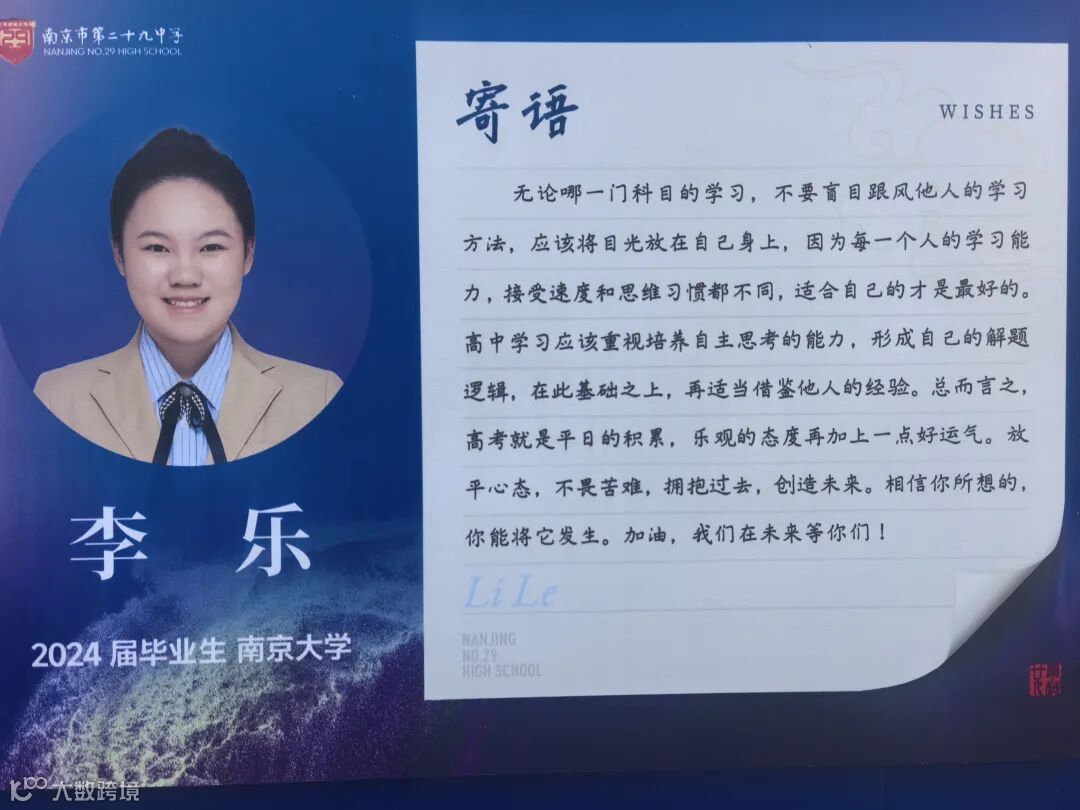 南京市第二十九中学
NANJING NO.29 HIGH SCHOOL
寄语
WISHES
无论哪一门科目的学习，不要盲目跟风他人的学习
方法，应该将目光放在自己身上，因为每一个人的学习能
力，接受速度和思维习惯都不同，适合自己的才是最好的。
高中学习应该重视培养自主思考的能力，形成自己的解题
逻辑，在此基础之上，再适当借鉴他人的经验。总而言之，
高考就是平日的积累，乐观的态度再加上一点好运气。放
平心态，不畏苦难，拥抱过去，创造未来。相信你所想的，
你能将它发生。加油，我们在未来等你们！
Li Le
NANJING
NO.29
HIGH SCHOOL
李 乐
2024 届毕业生 南京大学
大数跨境